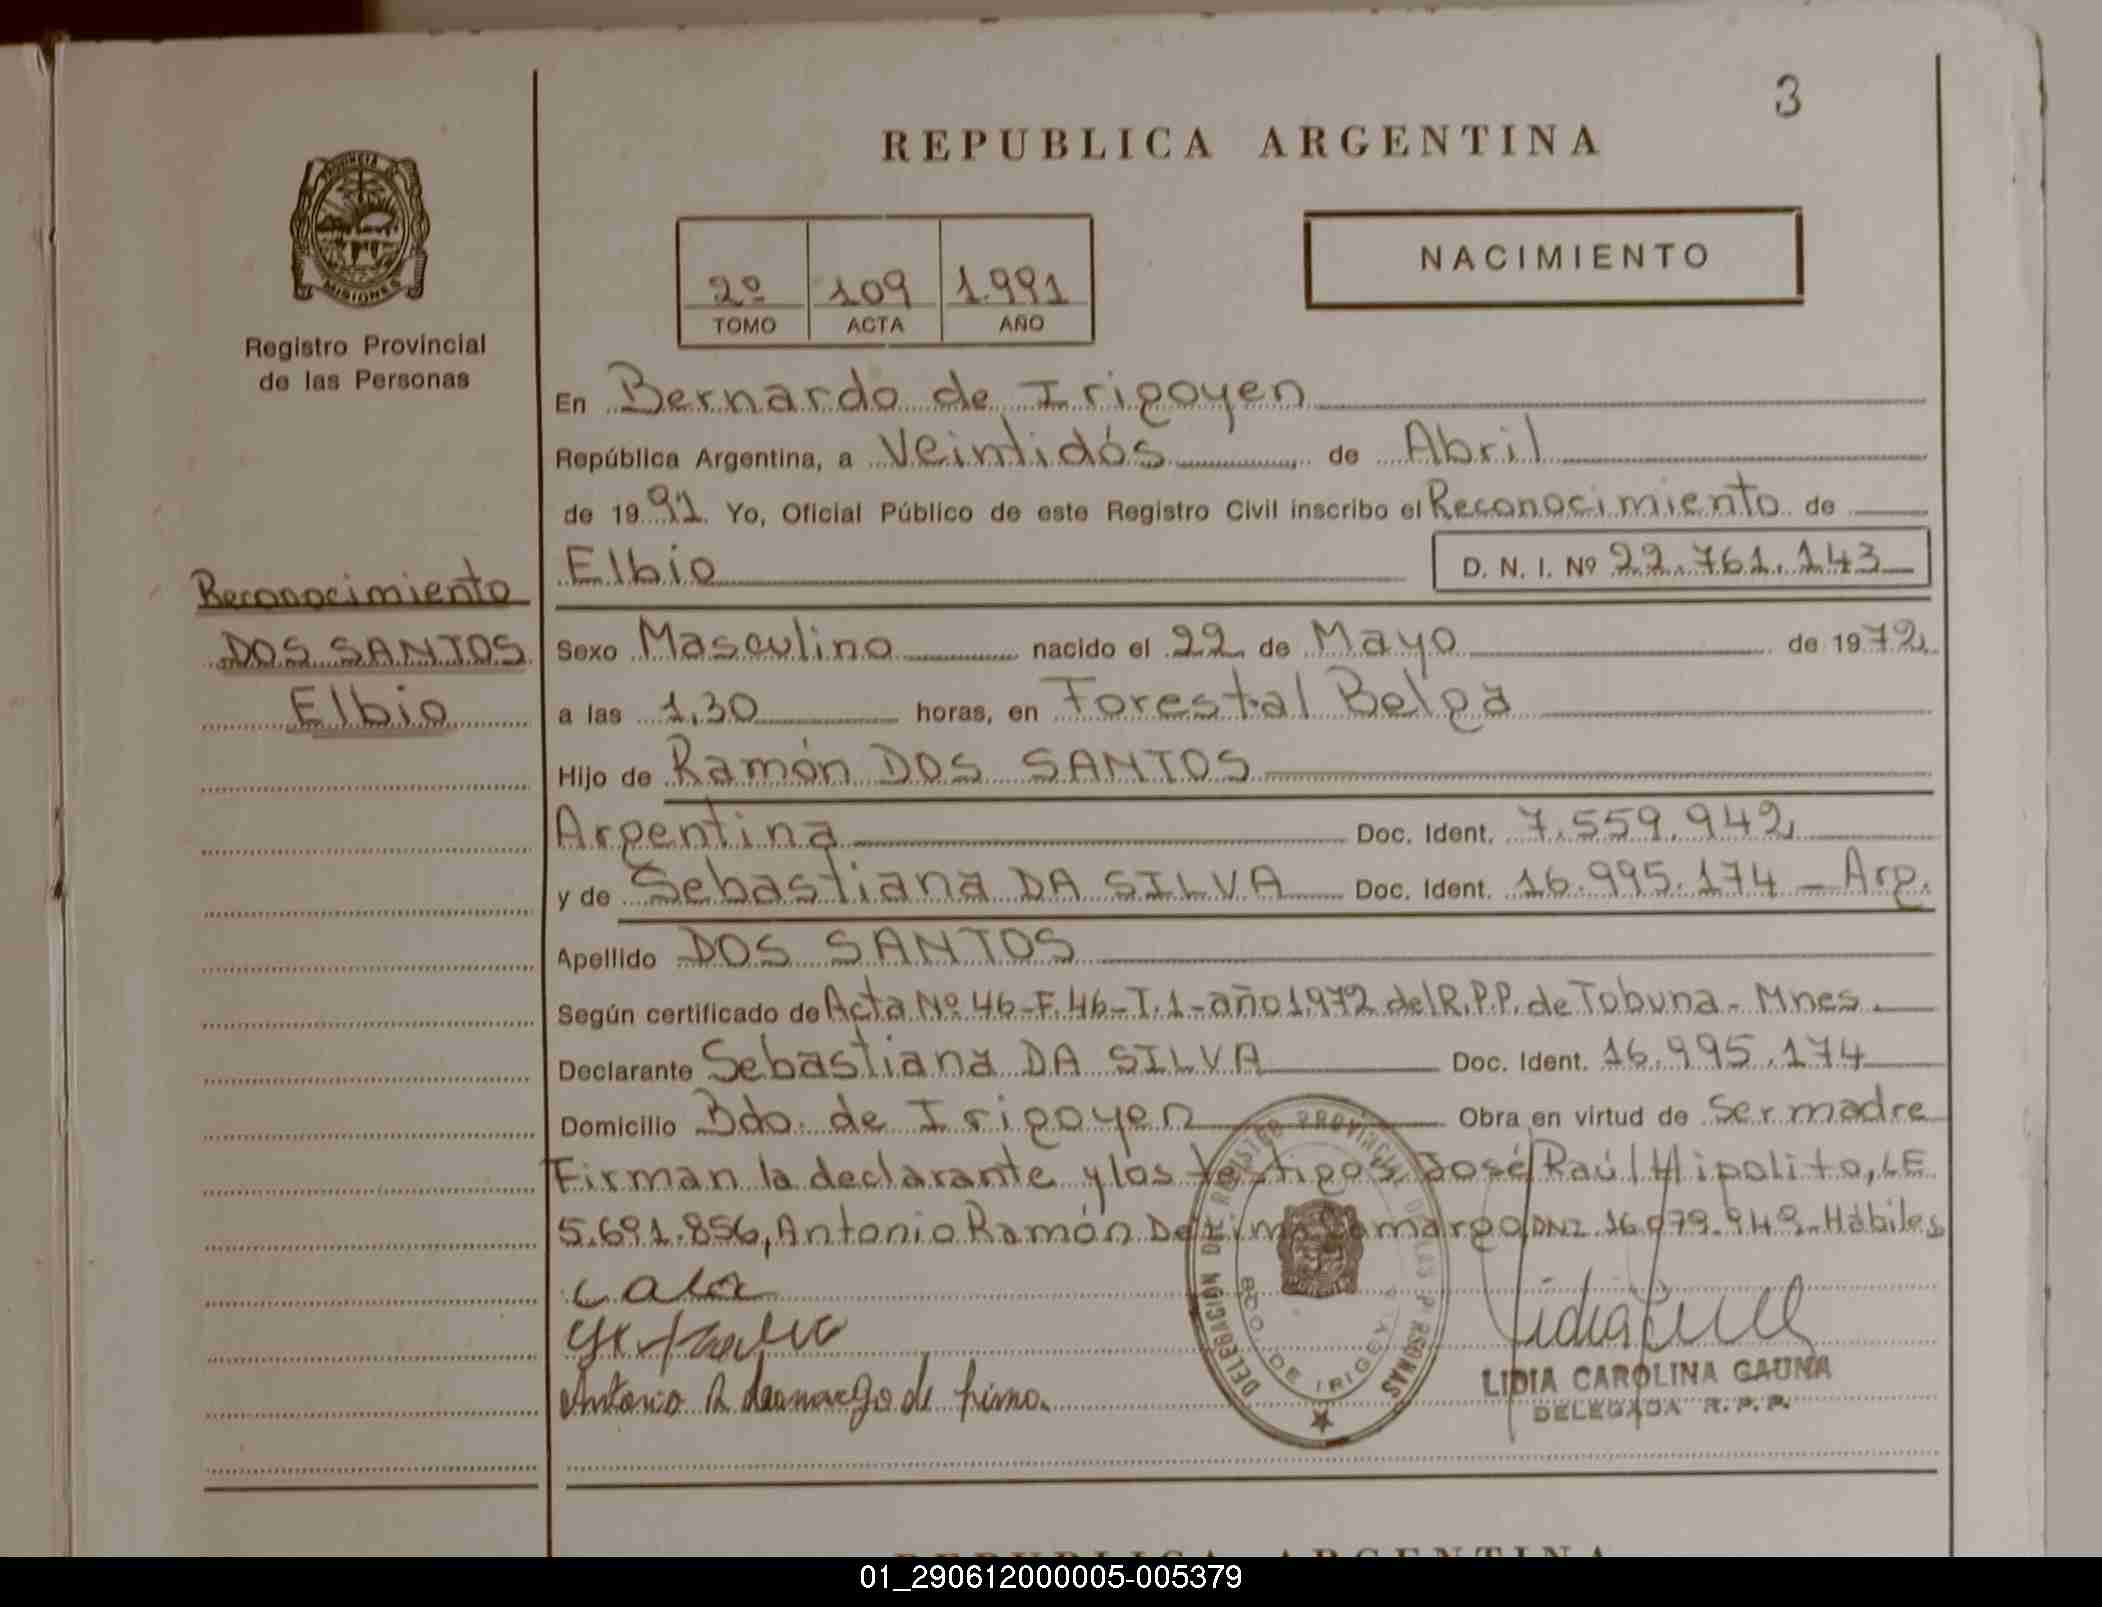 3
REPUBLICA ARGENTINA
PROVINCIA
MISIONES
Registro Provincial
de las Personas
2º 109 1.991
TOMO ACTA AÑO
NACIMIENTO
En Bernardo de Irigoyen
República Argentina, a Veintidós de Abril
de 1991 Yo, Oficial Público de este Registro Civil inscribo el Reconocimiento de
Elbio D. N. I. Nº 22.761.143
Reconocimiento
DOS SANTOS
Elbio
Sexo Masculino nacido el 22 de Mayo de 1972
a las 1,30 horas, en Forestal Belga
Hijo de Ramón DOS SANTOS
Argentina Doc. Ident. 7.559.942
y de Sebastiana DA SILVA Doc. Ident. 16.995.174 - Arg.
Apellido DOS SANTOS
Según certificado de Acta Nº 46-F.46-T.1-año 1.972 del R.P.P. de Tobuna - Mnes.
Declarante Sebastiana DA SILVA Doc. Ident. 16.995.174
Domicilio Bdo. de Irigoyen Obra en virtud de Ser madre
Firman la declarante y los testigos José Raúl Hipolito, LE
5.691.856, Antonio Ramón De Lima Camargo, DNI. 16.979.949 - Hábiles
Antonio R de Lima.
DELEGACION REGISTRO PROVINCIAL DE LAS PERSONAS
BDO. DE IRIGOYEN
LIDIA CAROLINA GAUNA
DELEGADA R. P. P.
REPUBLICA ARGENTINA
01_290612000005-005379